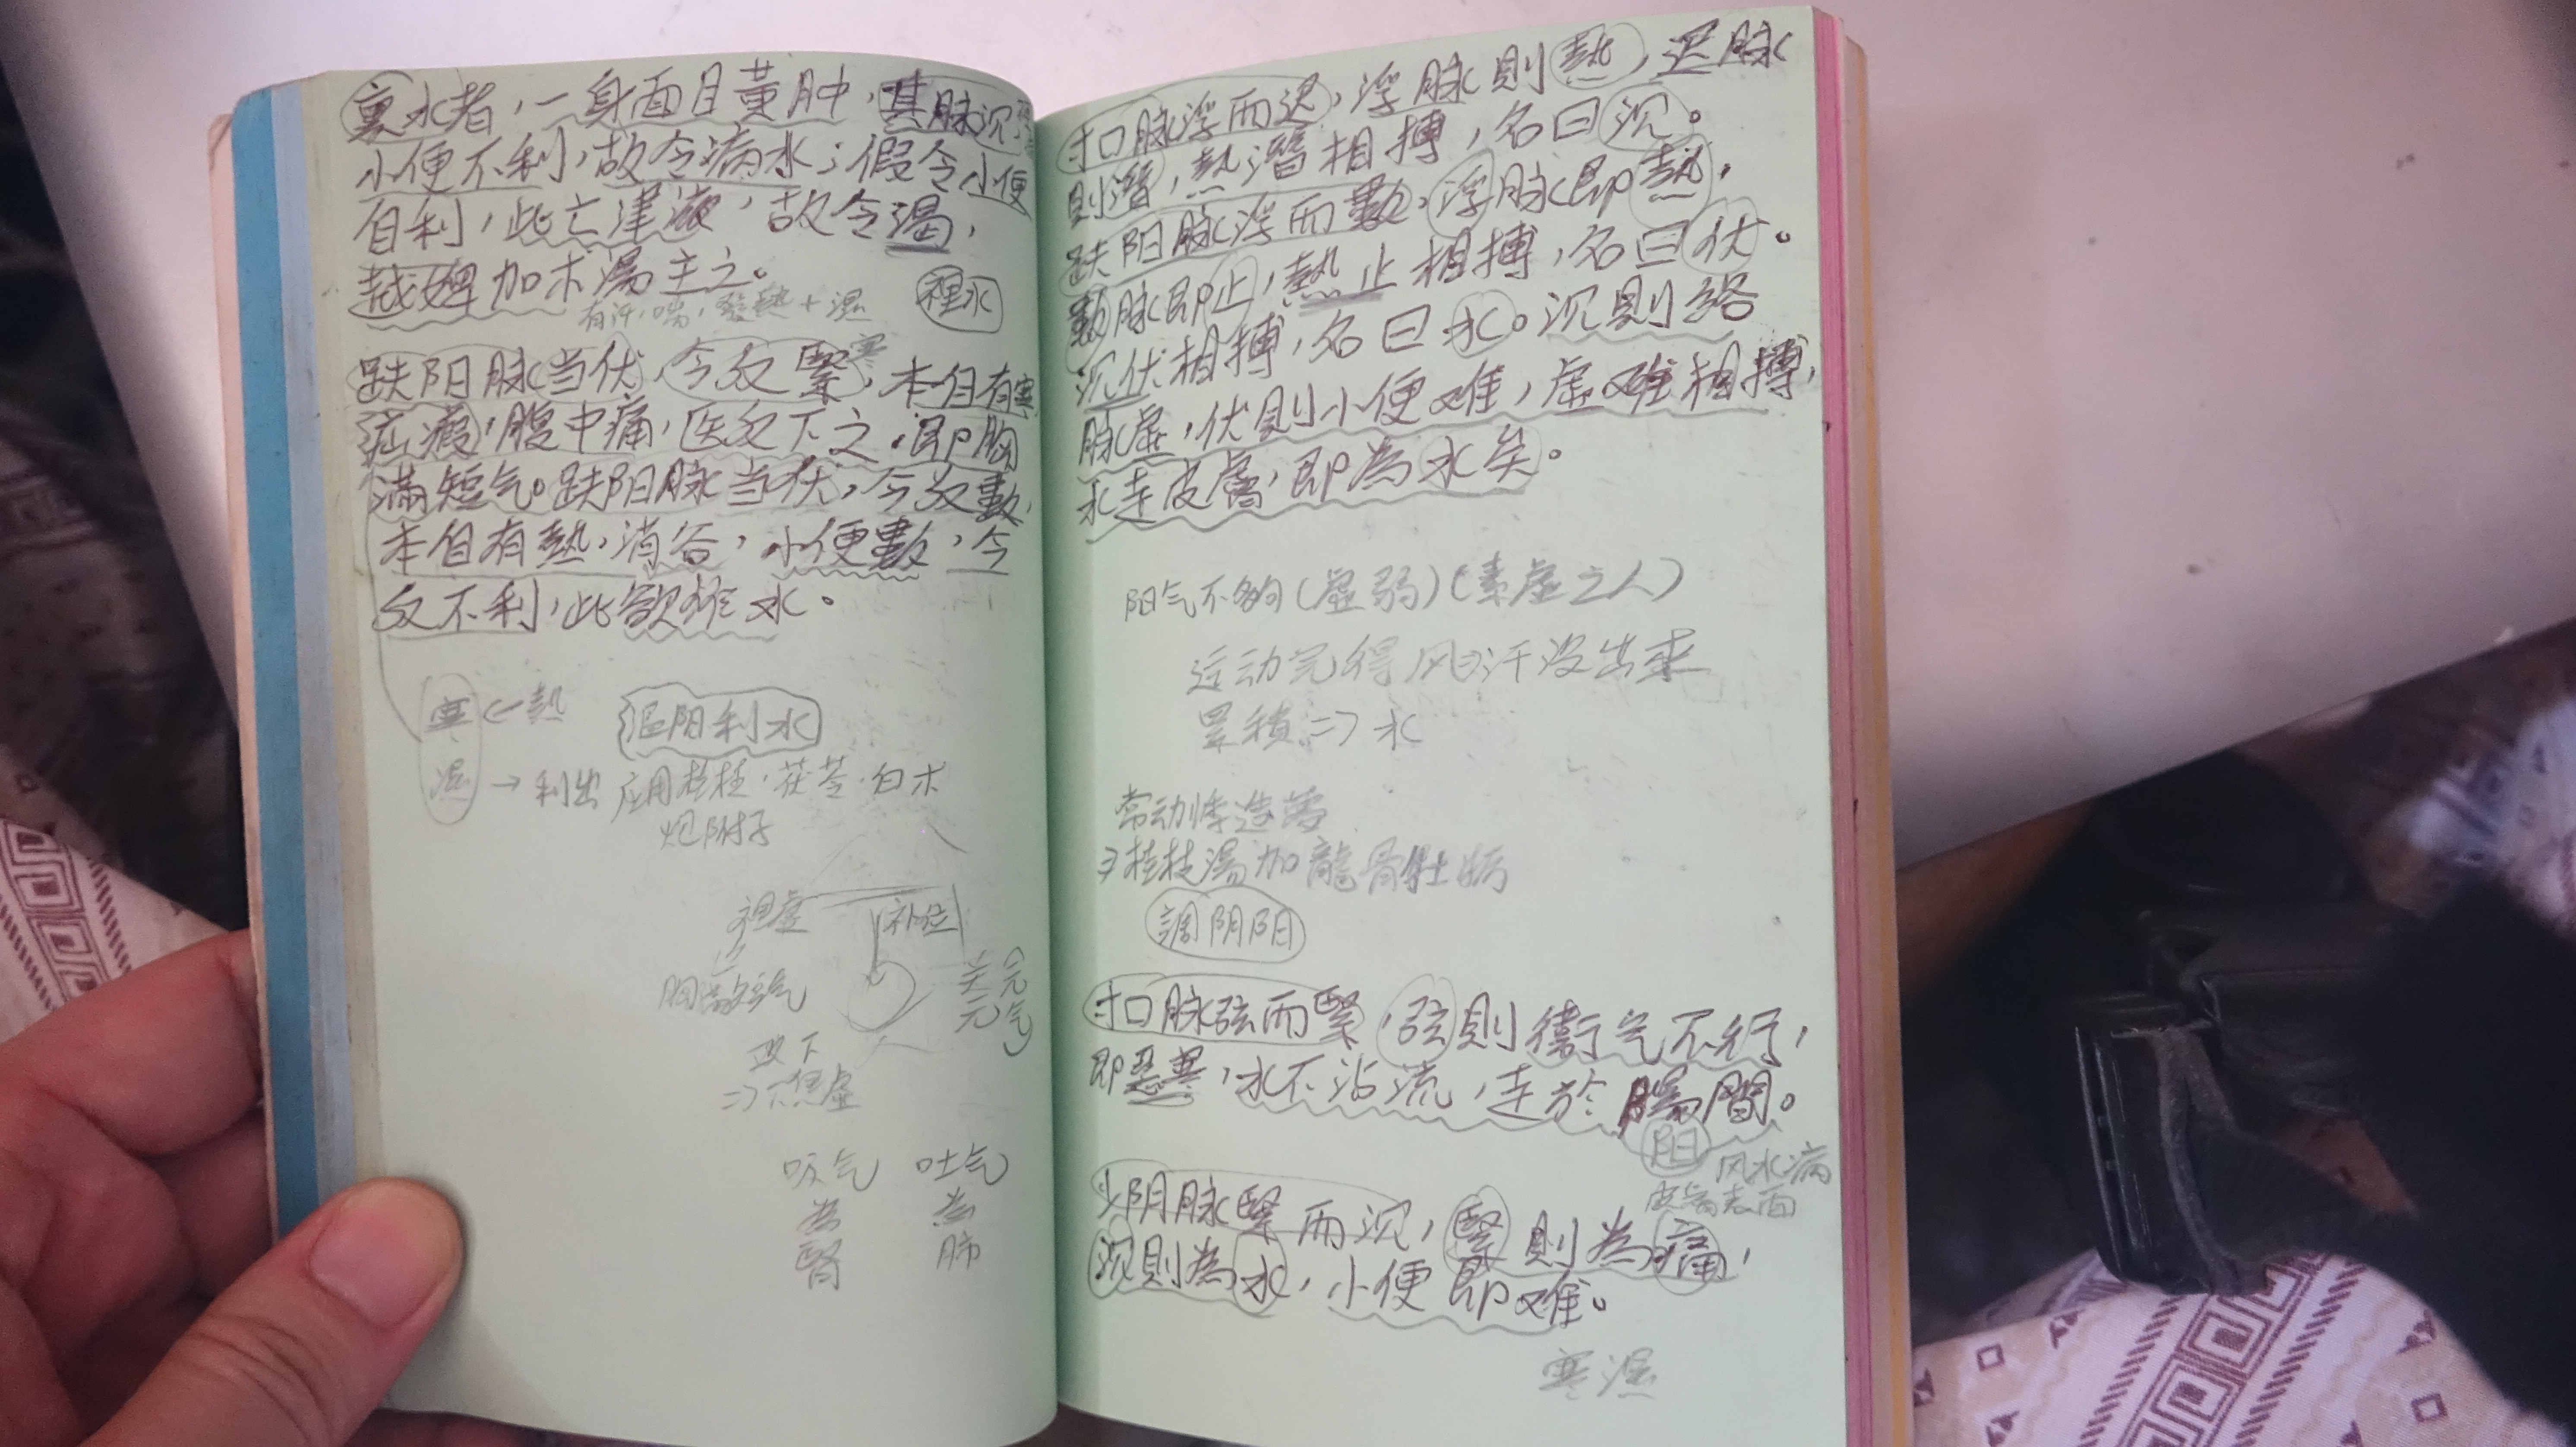 裏水者，一身面目黄肿，其脉沉
小便不利，故令病水；假令小便
自利，此亡津液，故令渴，
越婢加术湯主之。
有汗，喘，發熱＋濕
裡水
趺阳脉当伏，今反緊，本自有寒
疝瘕，腹中痛，医反下之，即胸
满短气。趺阳脉当伏，今反數，
本自有熱，消谷，小便數，今
反不利，此欲作水。
寒←熱
温阳利水
濕→利出 应用桂枝．茯苓．白术
炮附子
补位
关元
元气
下焦虚
吸气 吐气
為 為
腎 肺
寸口脉浮而迟，浮脉則熱，迟脉
則潛，熱潛相搏，名曰沉。
趺阳脉浮而數，浮脉即熱，
數脉即止，熱止相搏，名曰伏。
沉伏相搏，名曰水。沉則络
脉虚，伏則小便难，虚难相搏，
水走皮膚，即為水矣。
阳气不夠（虚弱）（素虚之人）
运动完得风，汗没出来
累積=>水
常动悸造夢
=>桂枝湯加龍骨牡蛎
調阴阳
寸口脉弦而緊，弦則衛气不行，
即恶寒，水不沾流，走於腸間。
阳 风水病
皮膚表面
少阴脉緊而沉，緊則為痛，
沉則為水，小便即难。
寒濕